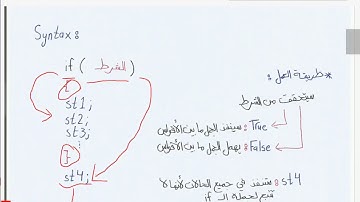 Syntax :
if ( الشرط )
{
st1 ;
st2 ;
st3 ;
⋮
}
st4 ;
* طريقة العمل :
سيتحقق من الشرط
True : سينفذ الجمل ما بين الأقواس
False : يهمل الجمل ما بين الأقواس
st4 : ستنفذ في جميع الحالات لأنها لا
تتبع لجملة الـ if